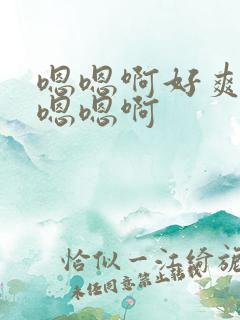 嗯嗯啊好爽
嗯嗯啊
恰似一江绮
未经同意禁止转载